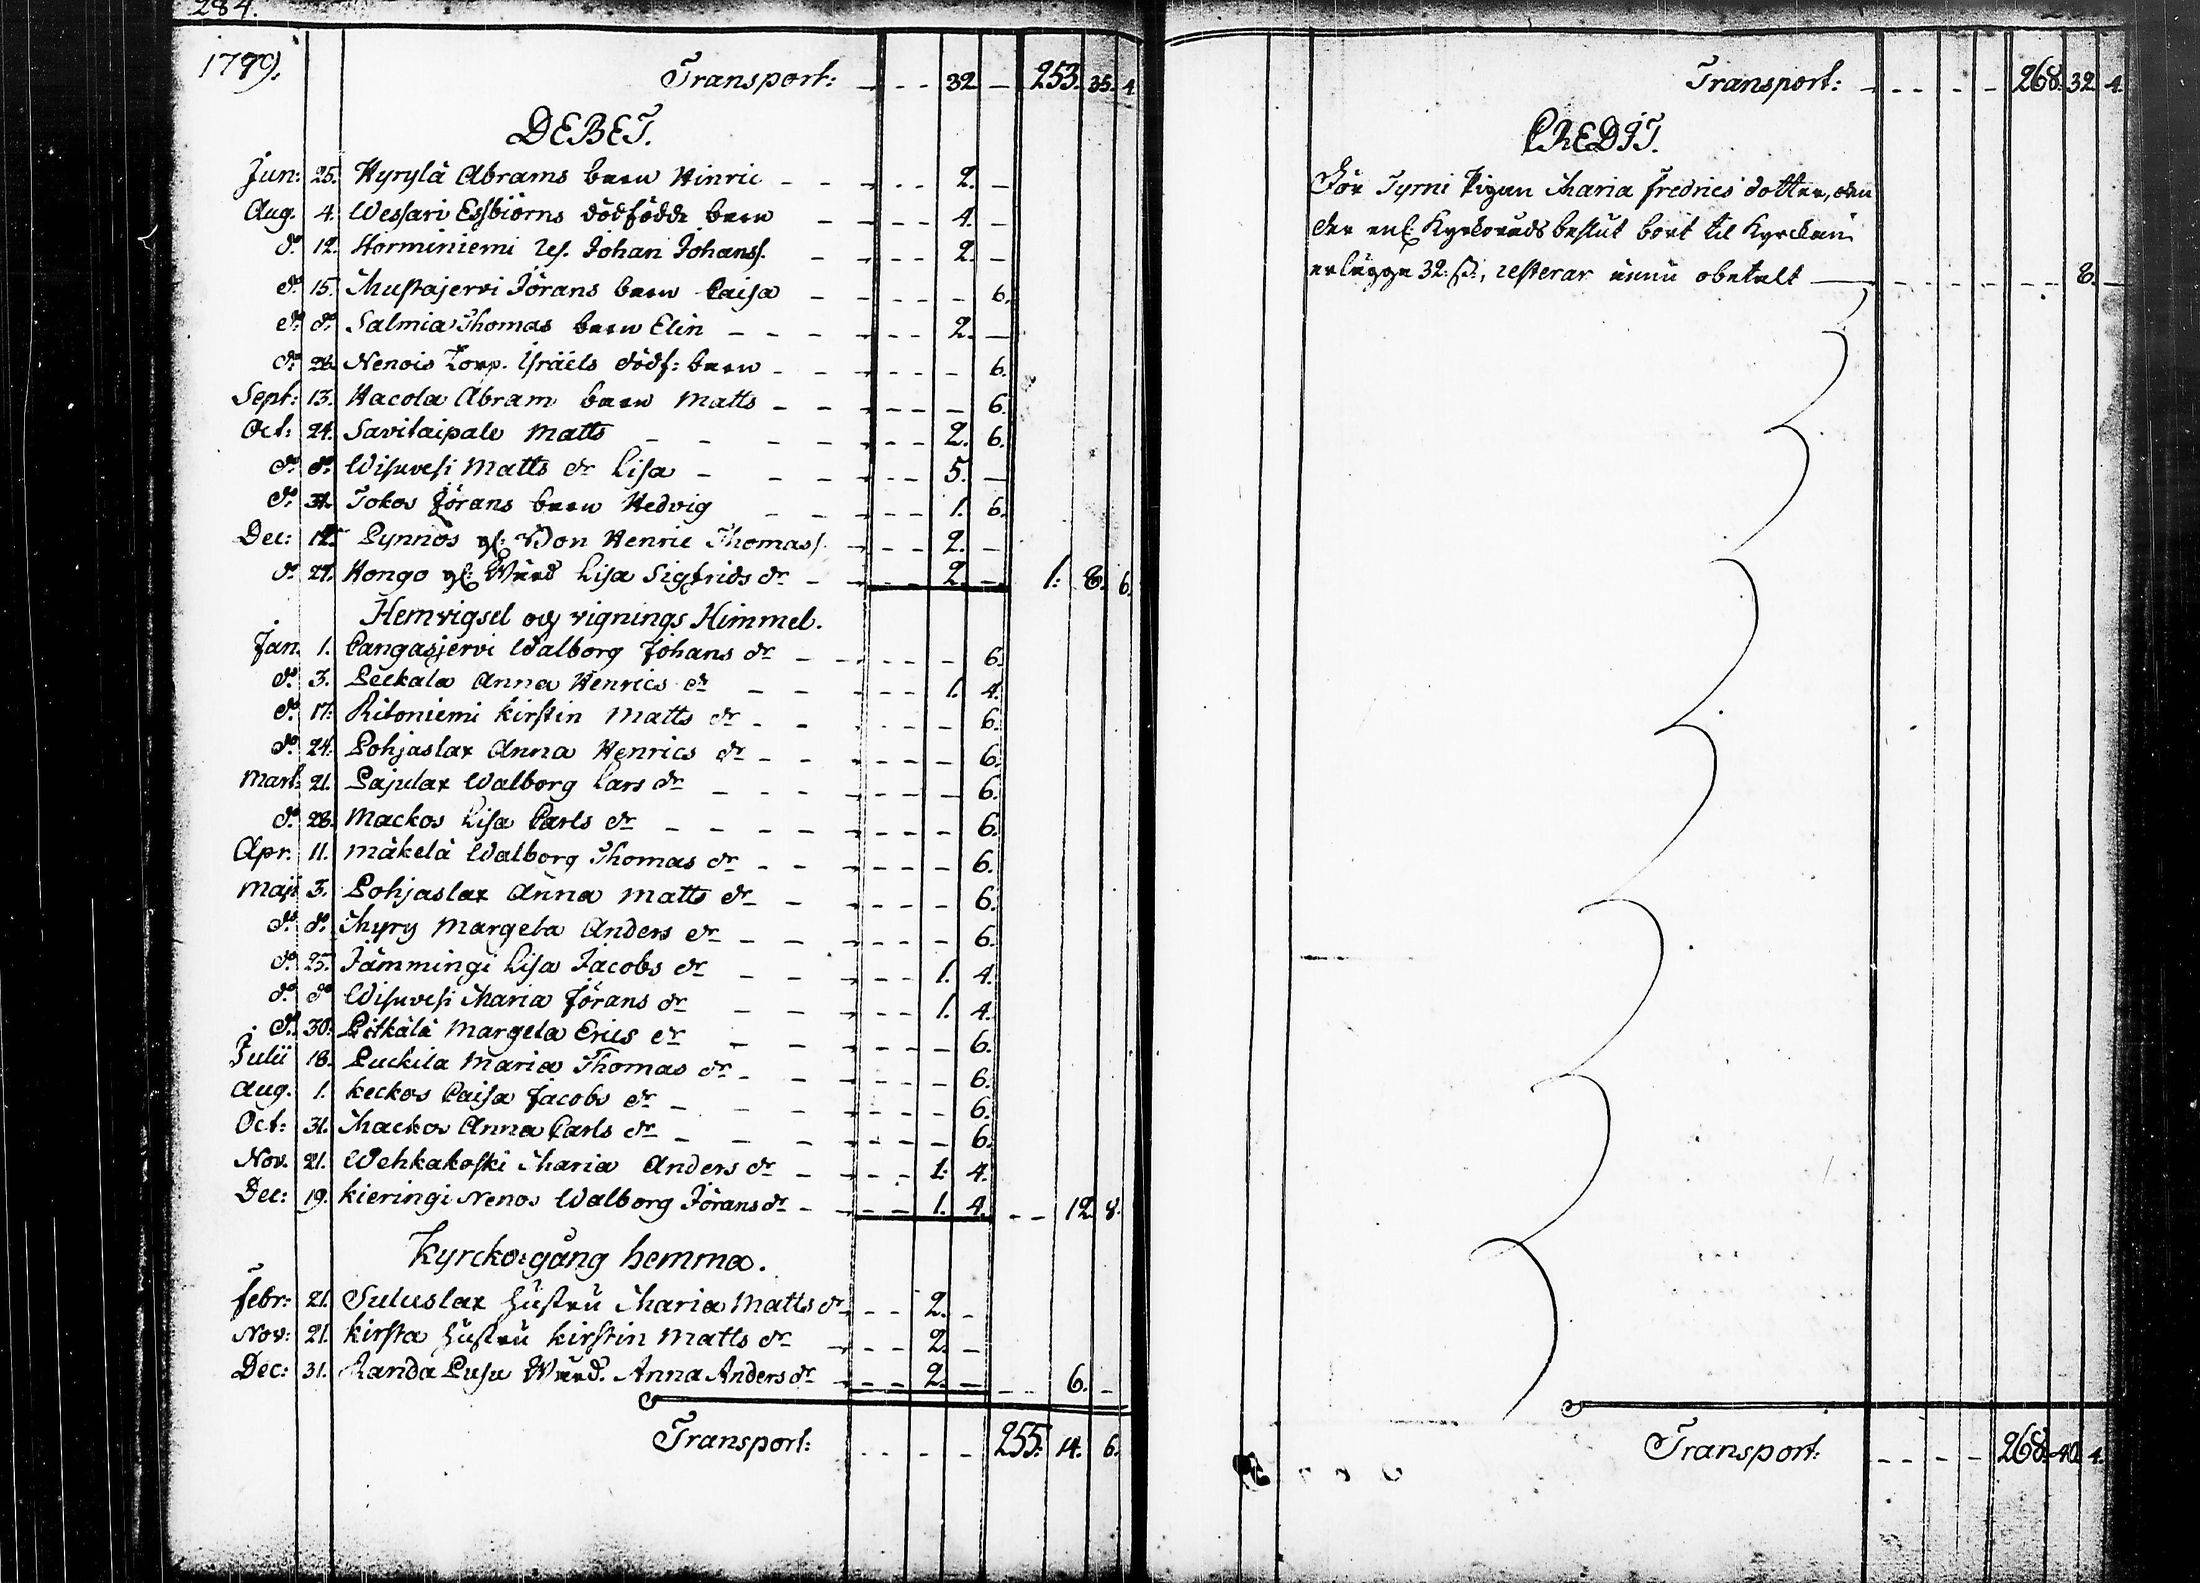 284.
1799. Transport: 32 — 253. 35. 4.
DEBET.
Jun: 25. Hyrylä Abrams barn Hinric 2. —
Aug. 4. Wessari Essbiörns dödfödde barn 4. —
do 12. Horminiemi Johan Johanss. 2. —
do 15. Mustajervi Jörans barn Caisa 6.
do do Salmia Thomas barn Elin 2. —
do 26. Nenois Israëls dödf: barn 6.
Sept: 13. Hacola Abram barn Matts 6.
Oct: 24. Savilaipale Matts 2. 6.
do do Wisuvesi Matts dr Lisa 5. —
do 31. Tokos Jörans barn Hedvig 1. 6.
Dec: Pynnös Henric Thomass. 2. —
do 27. Hongo Lisa Sigfrids dr 2. — 1. 8. 6.
Hemvigsel och vignings Himmel.
Jan. 1. Cangasjervi Walborg Johans dr 6.
do 3. Peckala Anna Henrics dr 1. 4.
do 17. Ritoniemi Kirstin Matts dr 6.
do 24. Pohjaslax Anna Henrics dr 6.
Mart: 21. Pajulax Walborg Lars dr 6.
do 28. Mackos Lisa Carls dr 6.
Apr. 11. Mäkelä Walborg Thomas dr 6.
Maji 3. Pohjaslax Anna Matts dr 6.
do do Myry Margeta Anders dr 6.
do 25. Jämmingi Lisa Jacobs dr 1. 4.
do do Wisuvesi Maria Jörans dr 1. 4.
do 30. Pitkälä Margeta Erics dr 6.
Julii 18. Puckila Maria Thomas dr 6.
Aug. 1. Keckos Caisa Jacobs dr 6.
Oct: 31. Mackos Anna Carls dr 6.
Nov. 21. Wehkakoski Maria Anders dr 1. 4.
Dec: 19. Kieringi Nenos Walborg Jörans dr 1. 4. 12. 8.
Kyrckogång hemma.
Febr: 21. Suluslax hustru Maria Matts dr 2. -
Nov: 21. Kirsta hustru Kirstin Matts dr 2. —
Dec: 31. Randa Pusu Anna Anders dr 2. — 6. -
Transport: 255. 14. 6.
Transport: 268. 32. 4.
CREDIT.
För Tyrni Pigan Maria Fredrics dotter, den
der enl: Kyrkoråds beslut bort til Kyrckan
erlägga 32. ß:, resterar ännu obetalt 8. —
Transport: 268. 40. 4.